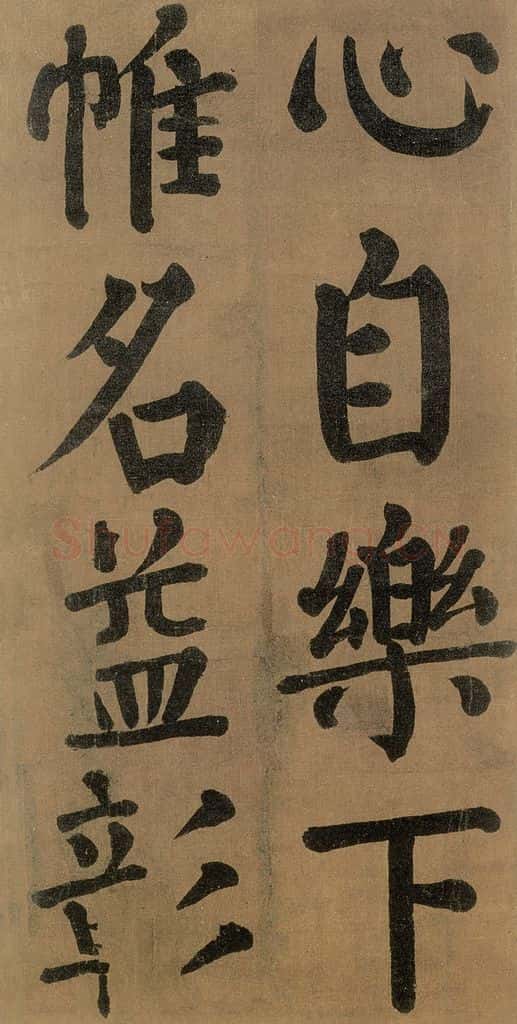 心自樂下
帷名益彰
Shufawang.CN